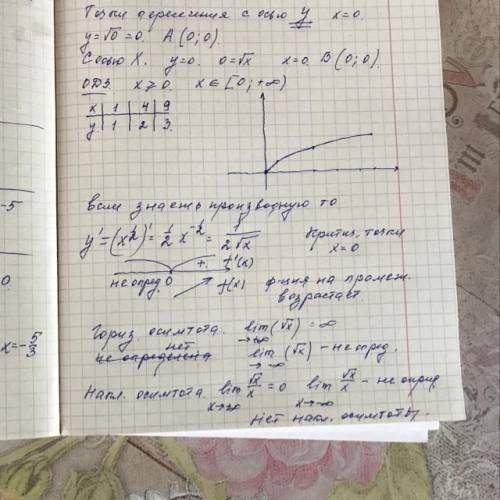 Точки пересечения с осью y x=0.
y=√0=0. A(0;0).
С осью X. y=0. 0=√x x=0. B(0;0).
ОДЗ. x⩾0. x∈[0;+∞)
x | 1 | 4 | 9
y | 1 | 2 | 3.
если знать производную то
-5
y'=(x^{1/2})'=1/2 x^{-1/2}=1/(2√x) критич. точки
x=0
+. f'(x)
0
не опред. 0 f(x) ф-ция на промеж.
возрастает
Гориз. осимтота. lim (√x)=∞
→+∞
нет
x=-5/3
не определена lim (√x) - не опред.
→-∞
Накл. осимтота. lim √x/x=0 lim √x/x - не опред.
x→∞ x→-∞
нет накл. осимтоты.